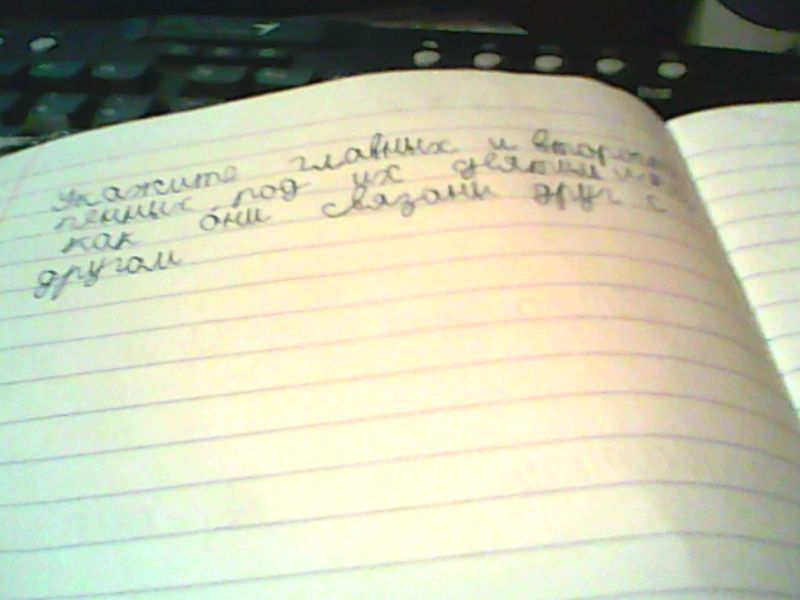 Укажите главных и второсте
пенных под их
как они связаны друг с
другом